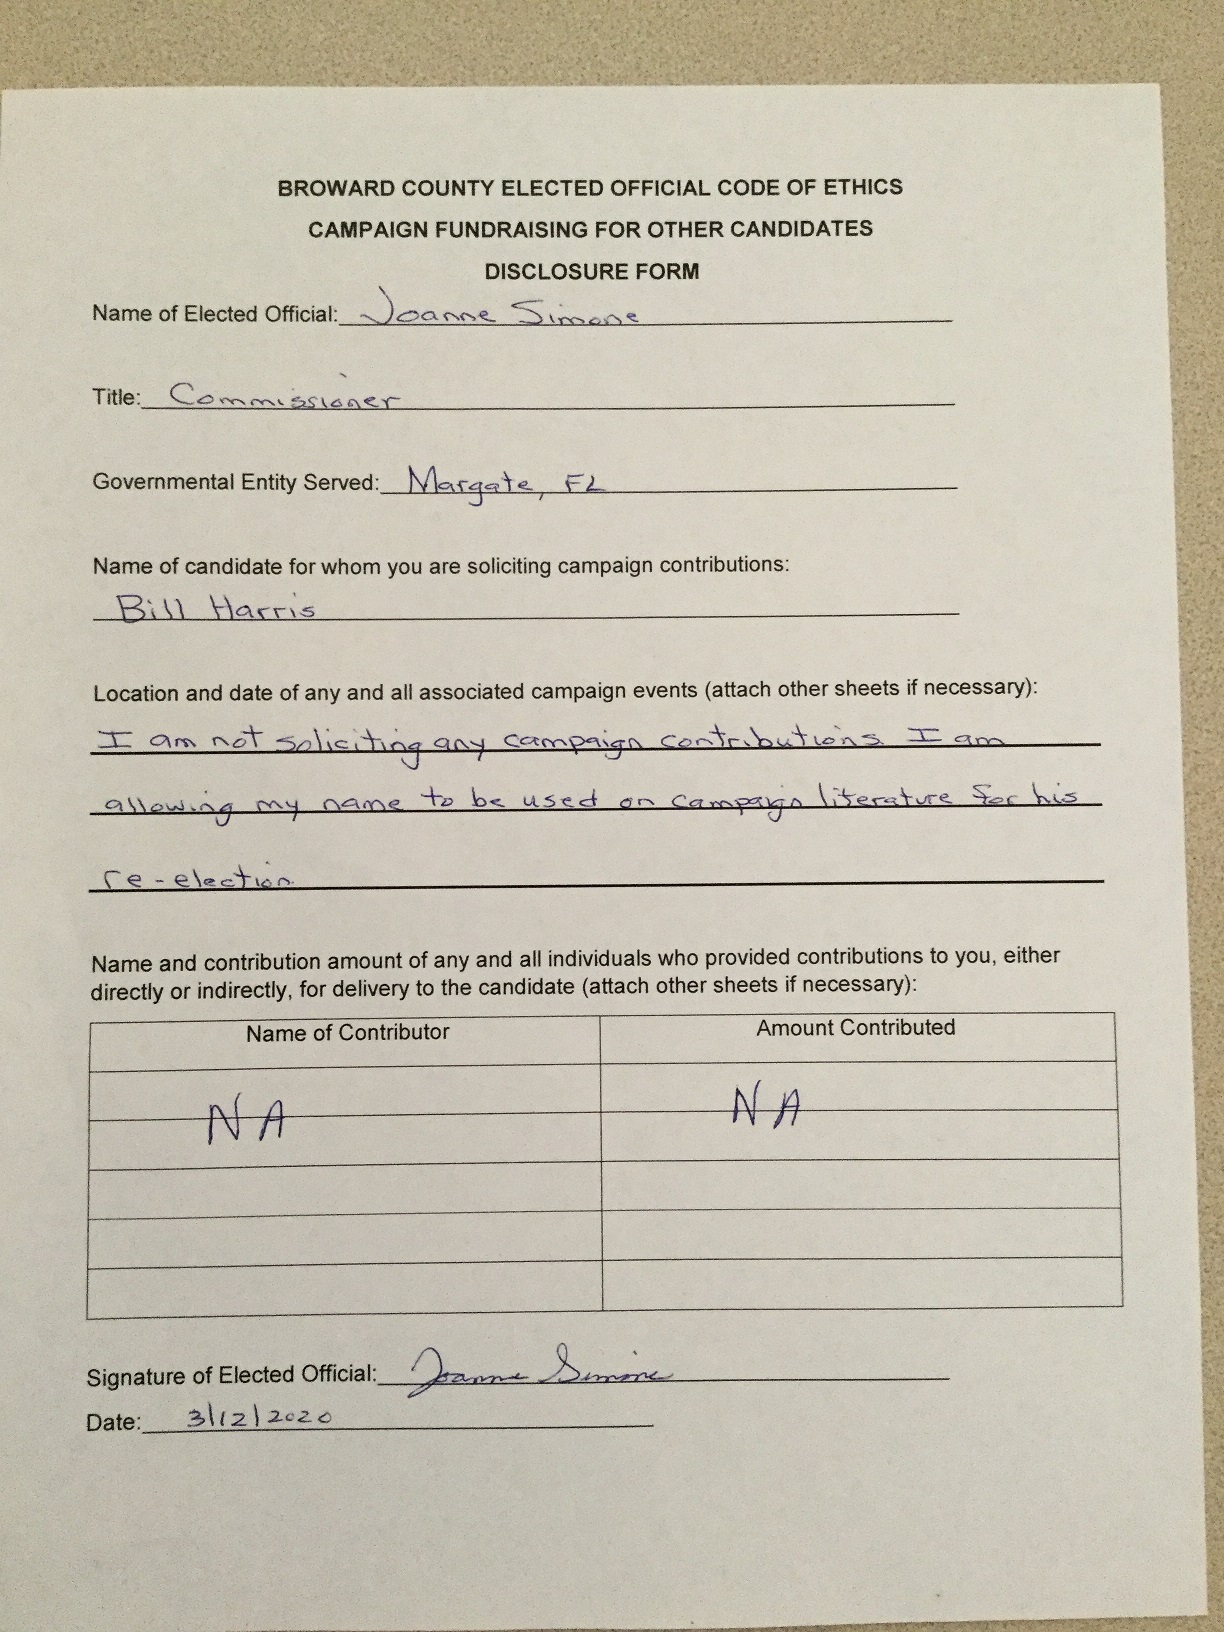 BROWARD COUNTY ELECTED OFFICIAL CODE OF ETHICS
CAMPAIGN FUNDRAISING FOR OTHER CANDIDATES
DISCLOSURE FORM
Name of Elected Official: Joanne Simone
Title: Commissioner
Governmental Entity Served: Margate, FL
Name of candidate for whom you are soliciting campaign contributions:
Bill Harris
Location and date of any and all associated campaign events (attach other sheets if necessary):
I am not soliciting any campaign contributions. I am
allowing my name to be used on campaign literature for his
re-election.
Name and contribution amount of any and all individuals who provided contributions to you, either
directly or indirectly, for delivery to the candidate (attach other sheets if necessary):
Name of Contributor Amount Contributed
NA NA
Signature of Elected Official: Joanne Simone
Date: 3/12/2020